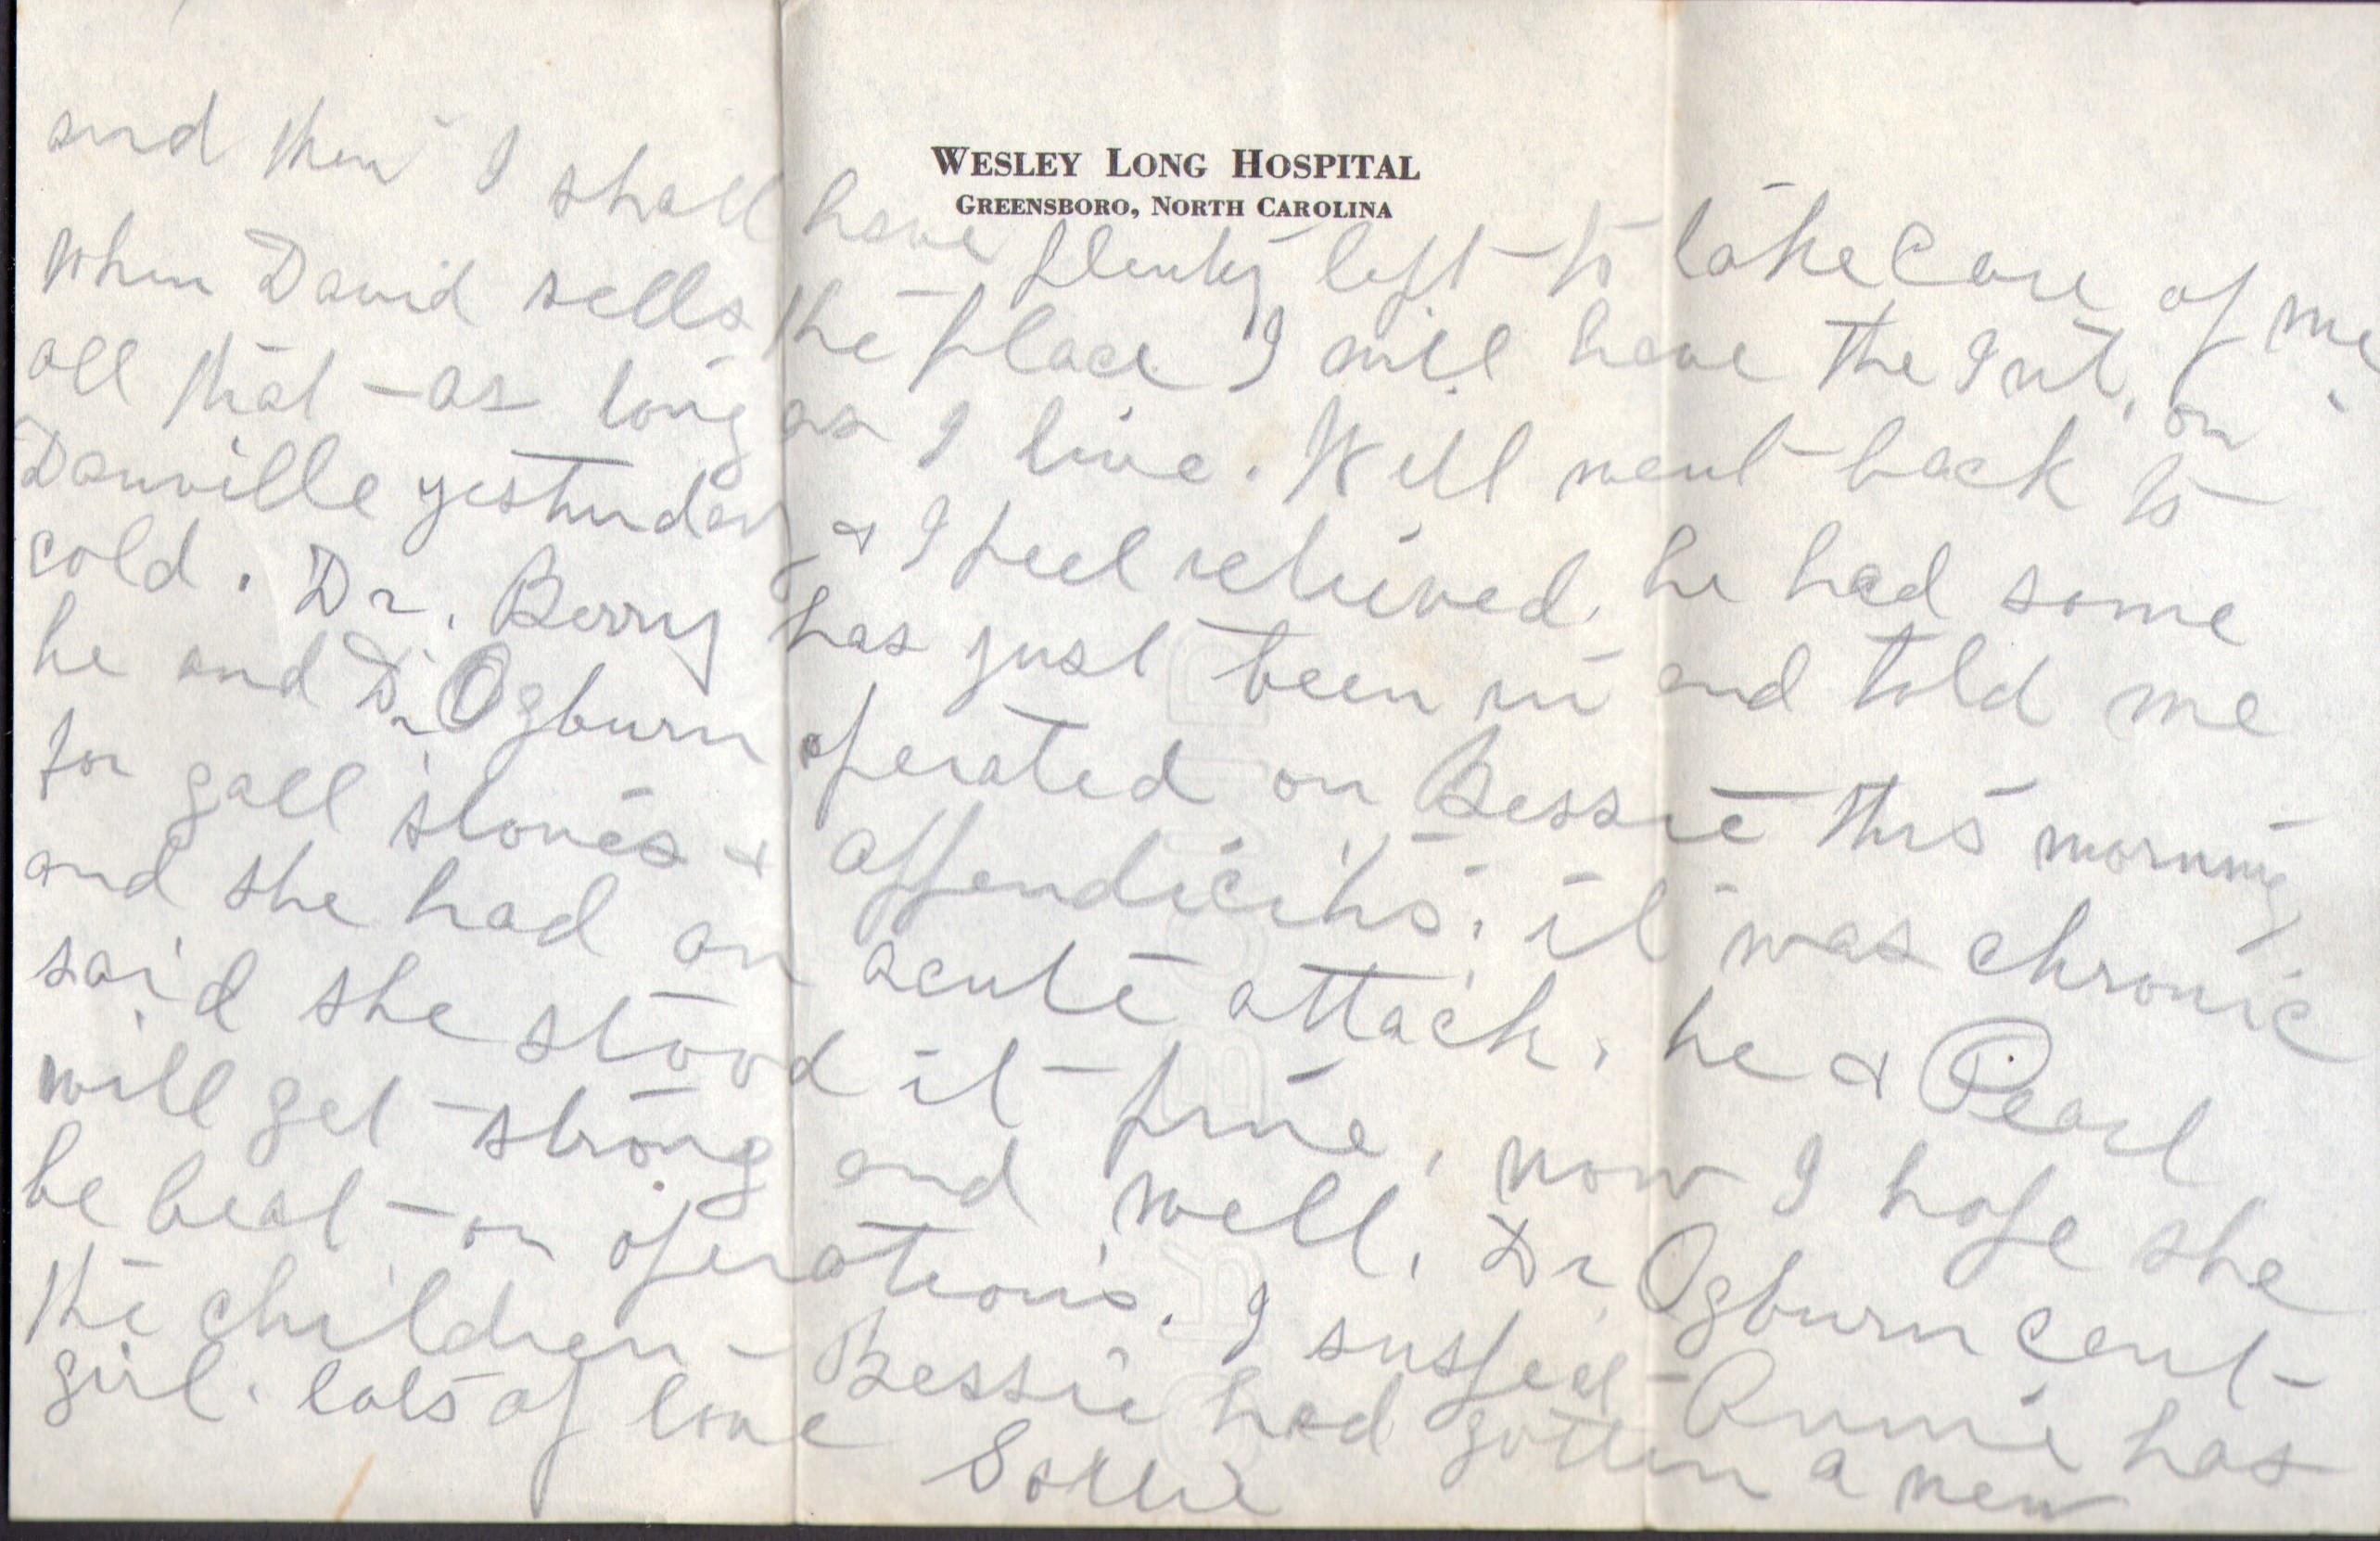 WESLEY LONG HOSPITAL
GREENSBORO, NORTH CAROLINA
and then I shall have plenty left to take care of me
when David sells the place I will have the Int. on
all that - as long as I live. Will went back to
Danville yesturday & I feel relieved. he had some
cold. Dr. Berry has just been in and told me
he and Dr Ogburn operated on Bessie this morning
for gall stones & appendicitis. it was chronic
and she had an acute attack. he & Pearl
said she stood it fine. now I hope she
will get strong and well. Dr Ogburn cent
be beat on operations. I suspect Annie has
the children - Bessie had gotten a new
girl. lots of love
Sallie